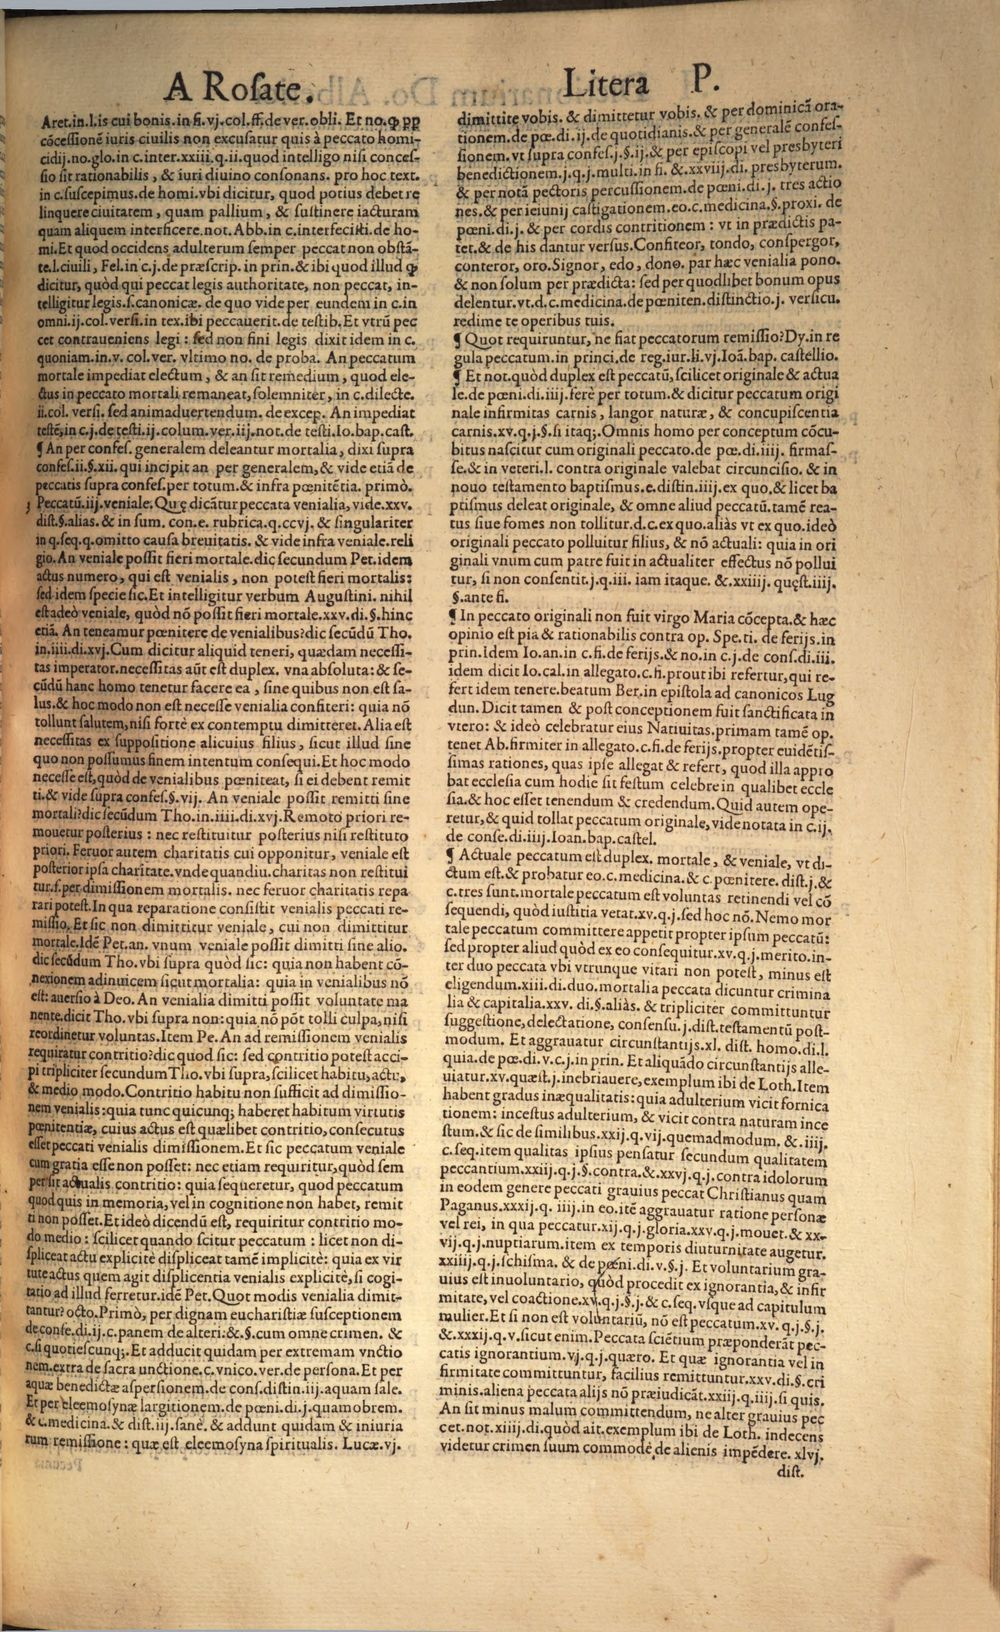 A Rosate.
Litera P.
Aret.in.l.is cui bonis.in fi.vj.col.ff.de ver.obli. Et no.ꝙ pp
cōcessionē iuris ciuilis non excusatur quis à peccato homi-
cidij.no.glo.in c.inter.xxiii.q.ii.quod intelligo nisi conces-
sio sit rationabilis, & iuri diuino consonans. pro hoc text.
in c.suscepimus.de homi.vbi dicitur, quod potius debet re
linquere ciuitatem, quam pallium, & sustinere iacturam
quam aliquem interficere.not. Abb.in c.interfecisti.de ho-
mi.Et quod occidens adulterum semper peccat non obstā-
te.l.ciuili, Fel.in c.j.de præscrip. in prin.& ibi quod illud ꝙ
dicitur, quòd qui peccat legis authoritate, non peccat, in-
telligitur legis.s.canonicæ. de quo vide per eundem in c.in
omni.ij.col.versi.in tex.ibi peccauerit.de testib.Et vtrū pec
cet contraueniens legi: sed non fini legis dixit idem in c.
quoniam.in.v. col.ver. vltimo no. de proba. An peccatum
mortale impediat electum, & an sit remedium, quod ele-
ctus in peccato mortali remaneat, solemniter, in c.dilecte.
ii.col. versi. sed animaduertendum. de excep. An impediat
testē, in c.j.de testi.ij.colum.ver.iij.not.de testi.Io.bap.cast.
¶ An per confes. generalem deleantur mortalia, dixi supra
confes.ii.§.xii. qui incipit an per generalem, & vide etiā de
peccatis supra confes.per totum.& infra pœnitētia. primò.
Peccatū.iij.veniale.Quę dicātur peccata venialia, vide.xxv.
dist.§.alias.& in sum. con.e. rubrica.q.ccvj.& singulariter
in q.seq.q.omitto causa breuitatis. & vide infra veniale.reli
gio.An veniale possit fieri mortale.dic secundum Pet.idem
actus numero, qui est venialis, non potest fieri mortalis:
sed idem specie sic.Et intelligitur verbum Augustini. nihil
est adeò veniale, quòd nō possit fieri mortale.xxv.di.§.hinc
etiā. An teneamur pœnitere de venialibus?dic secūdū Tho.
in.iiii.di.xvj.Cum dicitur aliquid teneri, quædam necessi-
tas imperator.necessitas aūt est duplex. vna absoluta: & se-
cūdū hanc homo tenetur facere ea, sine quibus non est sa-
lus.& hoc modo non est necesse venialia confiteri: quia nō
tollunt salutem, nisi fortè ex contemptu dimitteret. Alia est
necessitas ex suppositione alicuius filius, sicut illud sine
quo non possumus finem intentum consequi.Et hoc modo
necesse est, quòd de venialibus pœniteat, si ei debent remit
ti.& vide supra confes.§.vij. An veniale possit remitti sine
mortali?dic secūdum Tho.in.iiii.di.xvj.Remoto priori re-
mouetur posterius: nec restituitur posterius nisi restituto
priori. Feruor autem charitatis cui opponitur, veniale est
posterior ipsa charitate.vnde quandiu.charitas non restitui
tur.s.per dimissionem mortalis. nec feruor charitatis repa
rari potest.In qua reparatione consistit venialis peccati re-
missio. Et sic non dimittitur veniale, cui non dimittitur
mortale.Idē Pet.an. vnum veniale possit dimitti sine alio.
dic secūdum Tho.vbi supra quòd sic: quia non habent cō-
nexionem adinuicem sicut mortalia: quia in venialibus nō
est: auersio à Deo. An venialia dimitti possit voluntate ma
nente.dicit Tho.vbi supra non: quia nō pōt tolli culpa, nisi
reordinetur voluntas. Item Pe. An ad remissionem venialis
requiratur contritio?dic quod sic: sed contritio potest acci-
pi tripliciter secundum Tho.vbi supra, scilicet habitu, actu,
& medio modo.Contritio habitu non sufficit ad dimissio-
nem venialis: quia tunc quicunq; haberet habitum virtutis
pœnitentiæ, cuius actus est quælibet contritio, consecutus
esset peccati venialis dimissionem.Et sic peccatum veniale
cum gratia esse non posset: nec etiam requiritur, quòd sem
per sit actualis contritio: quia sequeretur, quod peccatum
quod quis in memoria, vel in cognitione non habet, remit
ti non posset.Et ideò dicendū est, requiritur contritio mo-
do medio: scilicet quando scitur peccatum: licet non di-
spliceat actu explicitè displiceat tamē implicitè: quia ex vir
tute actus quem agit displicentia venialis explicitè, si cogi-
tatio ad illud ferretur.idē Pet. Quot modis venialia dimit-
tantur?octo.Primò, per dignam eucharistiæ susceptionem
de conse.di.ij.c.panem de alteri:&.§.cum omne crimen. &
c.si quotiescunq;. Et adducit quidam per extremam vnctio
nem.extra de sacra vnctione.c.vnico.ver.de persona.Et per
aquæ benedictæ aspersionem.de cons.distin.iij.aquam sale.
Et per eleemosynæ largitionem.de pœni.di.j.quamobrem.
& c.medicina.& dist.iij.sanè.& addunt quidam & iniuria
rum remissione: quæ est eleemosyna spiritualis. Lucæ.vj.
dimittite vobis.& dimittetur vobis.& per dominicā ora-
tionem.de pœ.di.ij.de quotidianis.& per generalē confes-
sionem.vt supra confes.j.§.ij.& per episcopi vel presbyteri
benedictionem.j.q.j.multi.in fi.&.xxviij.di.presbyterum.
& per notā pectoris percussionem.de pœni.di.j. tres actio
nes.& per ieiunij castigationem.eo.c.medicina.§.proxi.de
pœni.di.j.& per cordis contritionem: vt in prædictis pa-
tet.& de his dantur versus.Confiteor, tondo, conspergor,
conteror, oro.Signor, edo, dono. par hæc venialia pono.
& non solum per prædicta: sed per quodlibet bonum opus
delentur.vt.d.c.medicina.de pœniten.distinctio.j. versicu.
redime te operibus tuis.
¶ Quot requiruntur, ne fiat peccatorum remissio?Dy.in re
gula peccatum.in princi.de reg.iur.li.vj.Ioā.bap.castellio.
¶ Et not.quòd duplex est peccatū, scilicet originale & actua
le.de pœni.di.iiij.ferè per totum.& dicitur peccatum origi
nale infirmitas carnis, langor naturæ, & concupiscentia
carnis.xv.q.j.§.si itaq;.Omnis homo per conceptum cōcu-
bitus nascitur cum originali peccato.de pœ.di.iiij. firmas-
se.& in veteri.l.contra originale valebat circuncisio.& in
nouo testamento baptismus.e.distin.iiij.ex quo.& licet ba
ptismus deleat originale, & omne aliud peccatū.tamē rea-
tus siue fomes non tollitur.d.c.ex quo.aliàs vt ex quo.ideò
originali peccato polluitur filius, & nō actuali: quia in ori
ginali vnum cum patre fuit in actualiter effectus nō pollui
tur, si non consentit.j.q.iii. iam itaque. &.xxiiij. quęst.iiij.
§.ante fi.
¶ In peccato originali non fuit virgo Maria cōcepta.& hæc
opinio est pia & rationabilis contra op. Spe.ti. de ferijs.in
prin.Idem Io.an.in c.fi.de ferijs.& no.in c.j.de cons.di.iii.
idem dicit Io.cal.in allegato.c.fi.prout ibi refertur, qui re-
fert idem tenere.beatum Ber.in epistola ad canonicos Lug
dun. Dicit tamen & post conceptionem fuit sanctificata in
vtero: & ideò celebratur eius Natiuitas.primam tamē op.
tenet Ab.firmiter in allegato.c.fi.de ferijs.propter euidētis-
simas rationes, quas ipse allegat & refert, quod illa appro
bat ecclesia cum hodie sit festum celebre in qualibet eccle
sia.& hoc esset tenendum & credendum.Quid autem ope-
retur, & quid tollat peccatum originale, vide notata in c.ij.
de conse.di.iiij.Ioan.bap.castel.
¶ Actuale peccatum est duplex. mortale, & veniale, vt di-
ctum est.& probatur eo.c.medicina.& c.pœnitere. dist.j.&
c.tres sunt.mortale peccatum est voluntas retinendi vel cō
sequendi, quòd iustitia vetat.xv.q.j.sed hoc nō. Nemo mor
tale peccatum committere appetit propter ipsum peccatū:
sed propter aliud quòd ex eo consequitur.xv.q.j.merito.in-
ter duo peccata vbi vtrunque vitari non potest, minus est
eligendum.xiii.di.duo.mortalia peccata dicuntur crimina
lia & capitalia.xxv. di.§.aliàs. & tripliciter committuntur
suggestione, delectatione, consensu.j.dist.testamentū post-
modum. Et aggrauatur circunstantijs.xl. dist. homo.di.l.
quia.de pœ.di.v.c.j.in prin. Et aliquādo circunstantijs alle-
uiatur.xv.quæst.j.inebriauere, exemplum ibi de Loth.Item
habent gradus inæqualitatis: quia adulterium vicit fornica
tionem: incestus adulterium, & vicit contra naturam ince
stum.& sic de similibus.xxij.q.vij.quemadmodum. &.iiij.
c.seq.item qualitas ipsius pensatur secundum qualitatem
peccantium.xxij.q.j.§.contra.&.xxvj.q.j.contra idolorum
in eodem genere peccati grauius peccat Christianus quam
Paganus.xxxij.q.iiij.in eo.itē aggrauatur ratione personæ
vel rei, in qua peccatur.xij.q.j.gloria.xxv.q.j.mouet.& xx-
vij.q.j.nuptiarum.item ex temporis diuturnitate augetur.
xxiiij.q.j.schisma. & de pœni.di.v.§.j. Et voluntarium gra-
uius est inuoluntario, quòd procedit ex ignorantia, & infir
mitate, vel coactione.xv.q.j.§.j.& c.seq.vsque ad capitulum
mulier.Et si non est voluntariū, nō est peccatum.xv.q.j.§.j.
&.xxxij.q.v.sicut enim.Peccata sciētium præponderāt pec-
catis ignorantium.vj.q.j.quæro. Et quæ ignorantia vel in
firmitate committuntur, facilius remittuntur.xxv.di.§.cri
minis.aliena peccata alijs nō præiudicāt.xxij.q.iiij.si quis.
An sit minus malum committendum, ne alter grauius pec
cet.not.xiiij.di.quòd ait.exemplum ibi de Loth. indecens
videtur crimen suum commodè de alienis impēdere. xlvj.
dist.